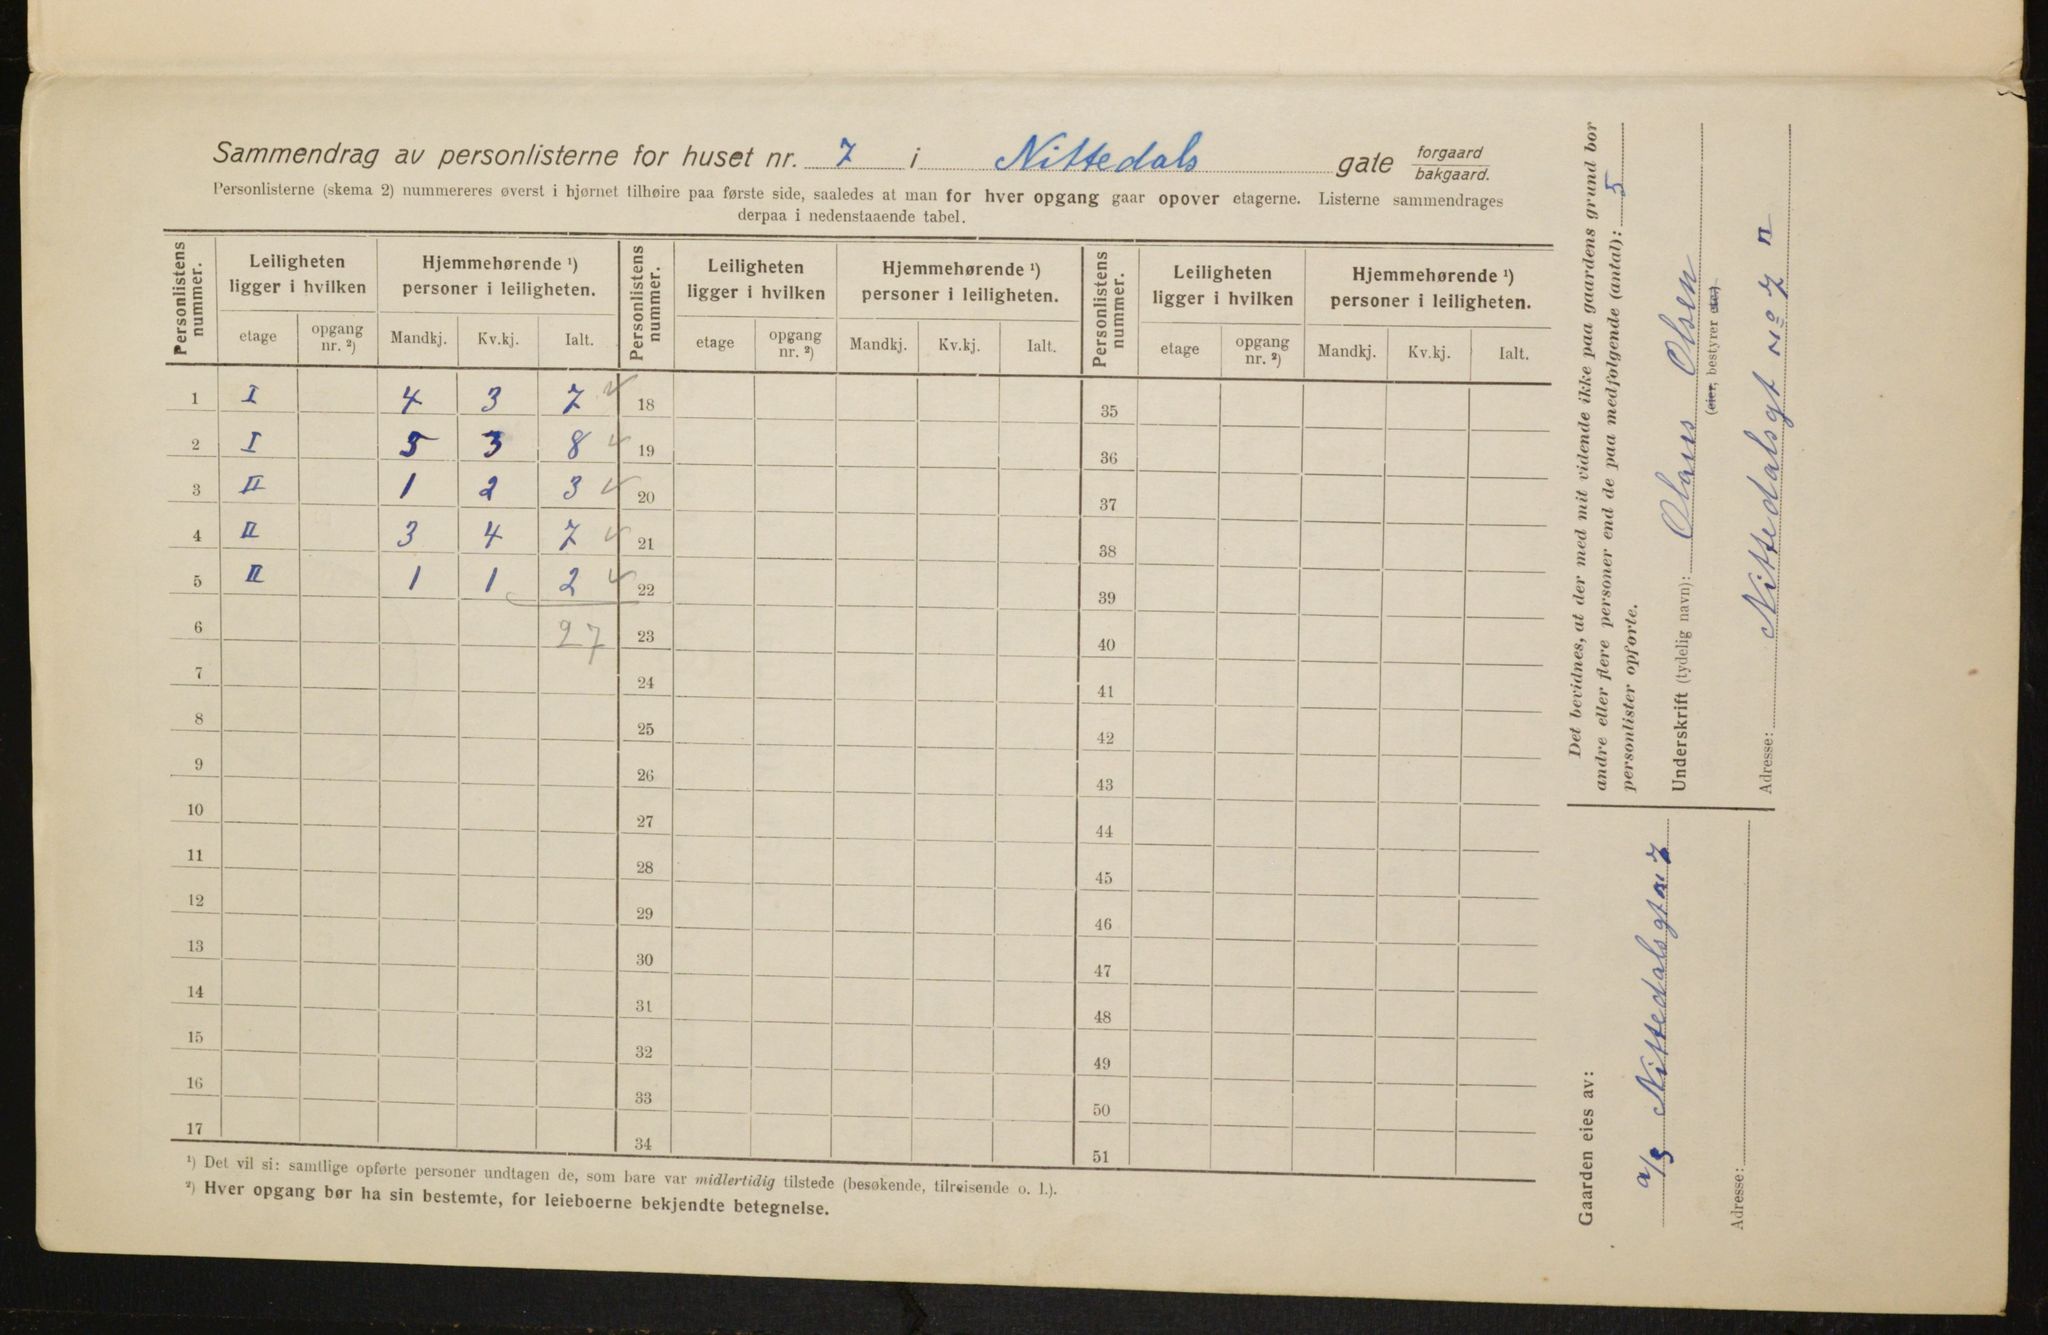 Sammendrag av personlisterne for huset nr. 7 i Nittedals gate forgaard
bakgaard.
Personlisterne (skema 2) nummereres øverst i hjørnet tilhøire paa første side, saaledes at man for hver opgang gaar opover etagerne. Listerne sammendrages
derpaa i nedenstaaende tabel.
Personlistens nummer. Leiligheten ligger i hvilken Hjemmehørende ¹) personer i leiligheten. Personlistens nummer. Leiligheten ligger i hvilken Hjemmehørende ¹) personer i leiligheten. Personlistens nummer. Leiligheten ligger i hvilken Hjemmehørende ¹) personer i leiligheten.
etage opgang nr. ²) Mandkj. Kv.kj. Ialt. etage opgang nr. ²) Mandkj. Kv.kj. Ialt. etage opgang nr. ²) Mandkj. Kv.kj. Ialt.
1 I 4 3 7 ✓ 18 35
2 I 5 3 8 ✓ 19 36
3 II 1 2 3 ✓ 20 37
4 II 3 4 7 ✓ 21 38
5 II 1 1 2 ✓ 22 39
6 27 23 40
7 24 41
8 25 42
9 26 43
10 27 44
11 28 45
12 29 46
13 30 47
14 31 48
15 32 49
16 33 50
17 34 51
¹) Det vil si: samtlige opførte personer undtagen de, som bare var midlertidig tilstede (besøkende, tilreisende o. l.).
²) Hver opgang bør ha sin bestemte, for leieboerne bekjendte betegnelse.
Det bevidnes, at der med mit vidende ikke paa gaardens grund bor
andre eller flere personer end de paa medfølgende (antal): 5
personlister opførte.
Underskrift (tydelig navn): Olaus Olsen
(eier, bestyrer etc.)
Adresse: Nittedalsgt No 7 II
Gaarden eies av:
a/s Nittedalsgt 7
Adresse: